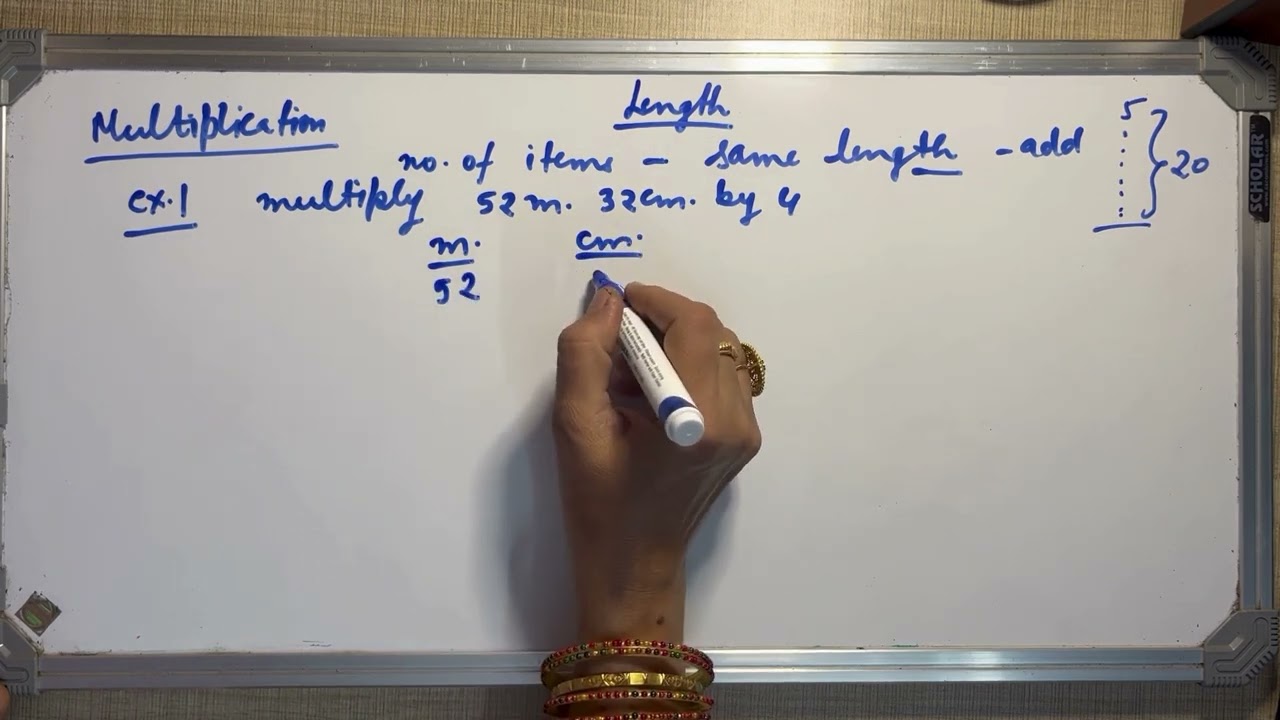 Length
Multiplication
no. of items - same length - add
5
20
ex.1 multiply 52m. 32cm. by 4
m. cm.
52
SCHOLAR™